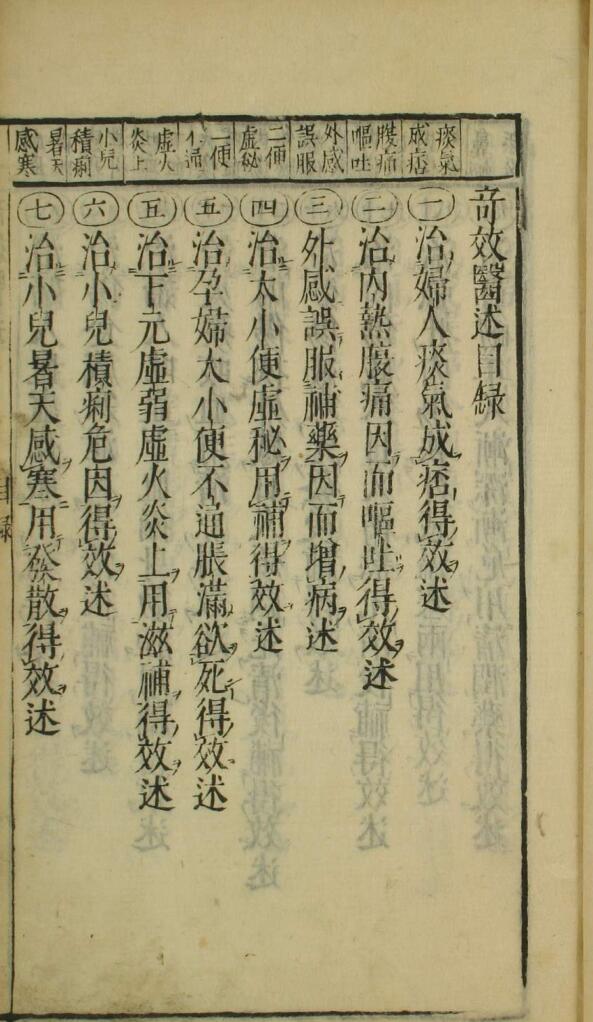 奇效醫述目録
痰氣成痞
㊀治婦人痰氣成痞得效述
腹痛嘔吐
㊁治內熱腹痛因而嘔吐得效述
外感誤服
㊂外感誤服補藥因而增病述
二便虛秘
㊃治大小便虛秘用補得效述
二便不通
㊄治孕婦大小便不通脹滿欲死得效述
虛火炎上
㊄治下元虛弱虛火炎上用滋補得效述
小兒積痢
㊅治小兒積痢危因得效述
暑天感寒
㊆治小兒暑天感寒用發散得效述
目録